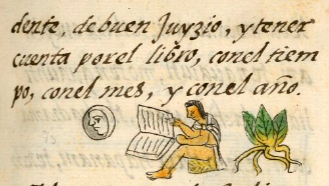 dente, de buen Juyzio, y tener
cuenta por el libro, con el tiem
po, con el mes, y con el año.